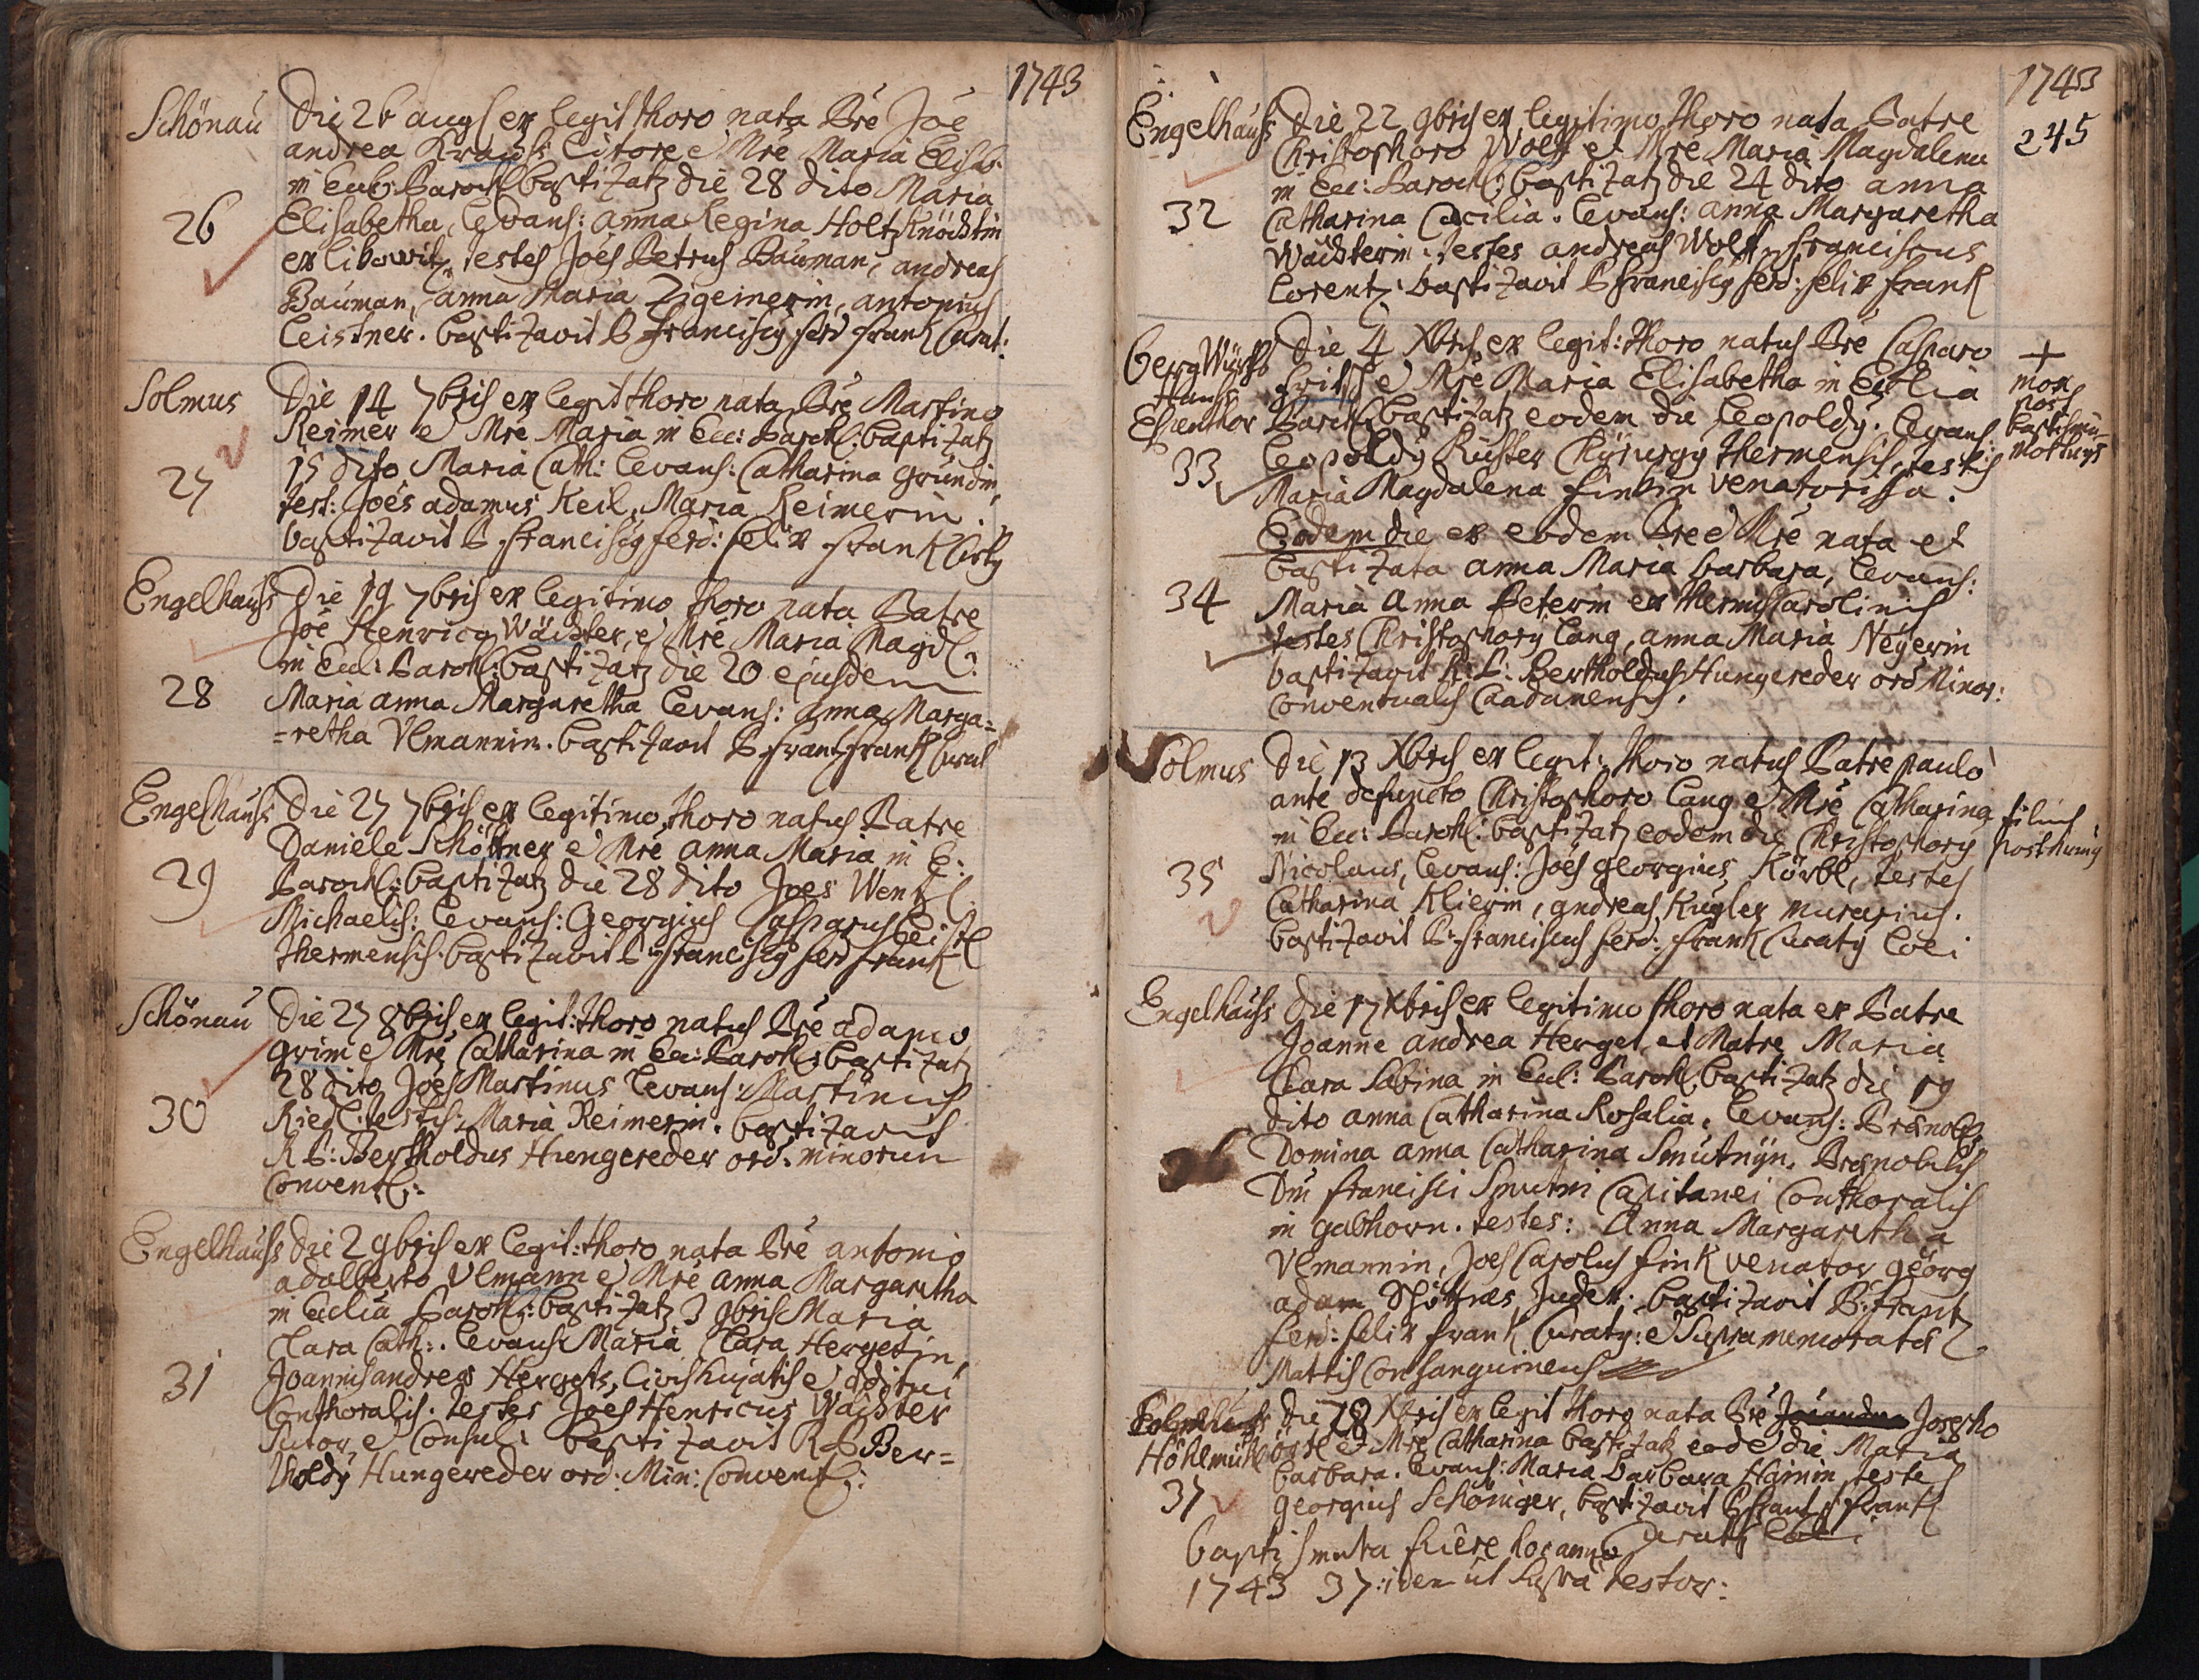 1743
Schönau
Die 26 aug: ex legit thoro nata Pre Joe
andrea Krauss Litore e Mre Maria Elisab:
in Eccl: Paroch: baptizatz die 28 dito Maria
26
Elisabetha, Levans: anna Regina Holtzknöchtin
ex libowitz, testes Joes Petrus Bauman, andreas
Bauman, anna Maria Zigeinerin, antonius
Leistner. baptizavit P Franciscy Ferd Frank Curat:
Solmus
Die 14 7bris ex legit thoro nata Pre Martino
Reimer e Mre Maria in Ecc: Paroch: baptizatz
27
15 dito Maria Cath: Levans: Catharina Gründin,
test: Joes adamus Keil, Maria Reimerin.
baptizavit P Franciscy Ferd: Felix Frank
Engelhauss
Die 19 7bris ex legitimo thoro nata Patre
Joe Henricy Wächter, e Mre Maria Magdl:
in Eccl: Paroch: baptizatz die 20 ejusdem
28
Maria anna Margaretha Levans: anna Marga=
=retha Ulmannin. baptizavit P Frantz Frank Curat
Engelhauss
Die 27 7bris ex legitimo thoro natus Patre
Daniele Schöttner e Mre anna Maria in E:
29
Paroch: baptizatz die 28 dito Joes Wentzl
Michaelis: Levans: Georgius Casparus Leistl
thermensis. baptizavit P Franciscy Ferd Frank
Schönau
Die 27 8bris ex legit: thoro natus Pre adamo
Grim e Mre Catharina in Ecc: Paroch: baptizatz
28 dito Joes Martinus Levans: Martinus
30
Riedl: testis: Maria Reimerin. baptizavit
R P: Bertholdus Hungereder ord: minorum
Conventl:
Engelhauss
Die 2 9bris ex legit: thoro nata Pre antonio
adalberto Ulmann e Mre anna Margaretha
in Eccliâ Paroch: baptizatz 3 9bris Maria
Clara Cath:. Levans Maria Clara Hergetin,
31
Joannis andreas Hergets, Civis hujatis e aditui
Conthoralis. testes Joes Henricus Wächter
Sutor e Consul: baptizavit R P Ber=
tholdy Hungereder ord: Min: Conventl:
1743
245
Engelhauss
Die 22 9bris ex legitimo thoro nata Patre
Christophoro Wolff et Mre Maria Magdalena
in Ecc: Paroch: baptizatz die 24 dito anna
32
Catharina Cacilia. Levans: anna Margaretha
Wächterin. testes andreas Wolff, Franciscus
Lorentz. baptizavit P Franciscy Ferd: Felix Frank
Die 4 Xbris ex legit: thoro natus Pre Casparo
Fritsch e Mre Maria Elisabetha in Ecclia
Paroch: baptizatz eodem die Leopoldy. Levans:
33
Leopoldy Rüster Chyrurgy thermensis, testis
Maria Magdalena Finkin venatorissa.
+
mox
post
baptismu
mortuus
Eodem die ex eodem Pre e Mre nata et
baptizata anna Maria barbara, Levans:
34
Maria Anna Peterin ex thermis Carolinis
testes Christophory Lang, anna Maria Negerin
baptizavit R: P: Bertholdus Hungereder ord Minor:
Conventualis Caadanensis.
Solmus
Die 13 Xbris ex legit: thoro natus Patre paulo
ante defuncto Christophoro Lang e Mre Catharina
in Ecc: Paroch: baptizatz eodem die Christophory
filius
posthumy
35
Nicolaus, Levans: Joes georgius Körbl, testes
Catharina Klierin, andreas Kugler murarius.
baptizavit P Franciscus Ferd: Frank Curaty Loci
Engelhauss
Die 17 Xbris ex legitimo thoro nata ex Patre
Joanne andrea Herget, et Matre Maria
Clara Sabina in Eccl: Paroch: baptizatz die 19
dito anna Catharina Rosalia. Levans: Prænobs
36
Domina anna Catharina Smutnijn, Prænobilis
Dni Francisci Smutni Capitanei Conthoralis
in gabhorn. testes: Anna Margaretha
Ulmannin, Joes Carolus Fink venator georg
adam Judex. baptizavit P: Frantz
Ferd: Felix Frank Curaty: e Supra memoratæ
Matris Consanguineus
Höhlmühl
Die 28 Xbris ex legit thoro nata Pre Josepho
e Mre Catharina baptizatz eodẽ die Maria
barbara. Levans: Maria barbara Hainin, testes
37
georgius Schöniger, baptizavit P Frantz Frank
Curatus Loci
baptismata fuêre hoc anno
1743 37: idem ut supra testor: